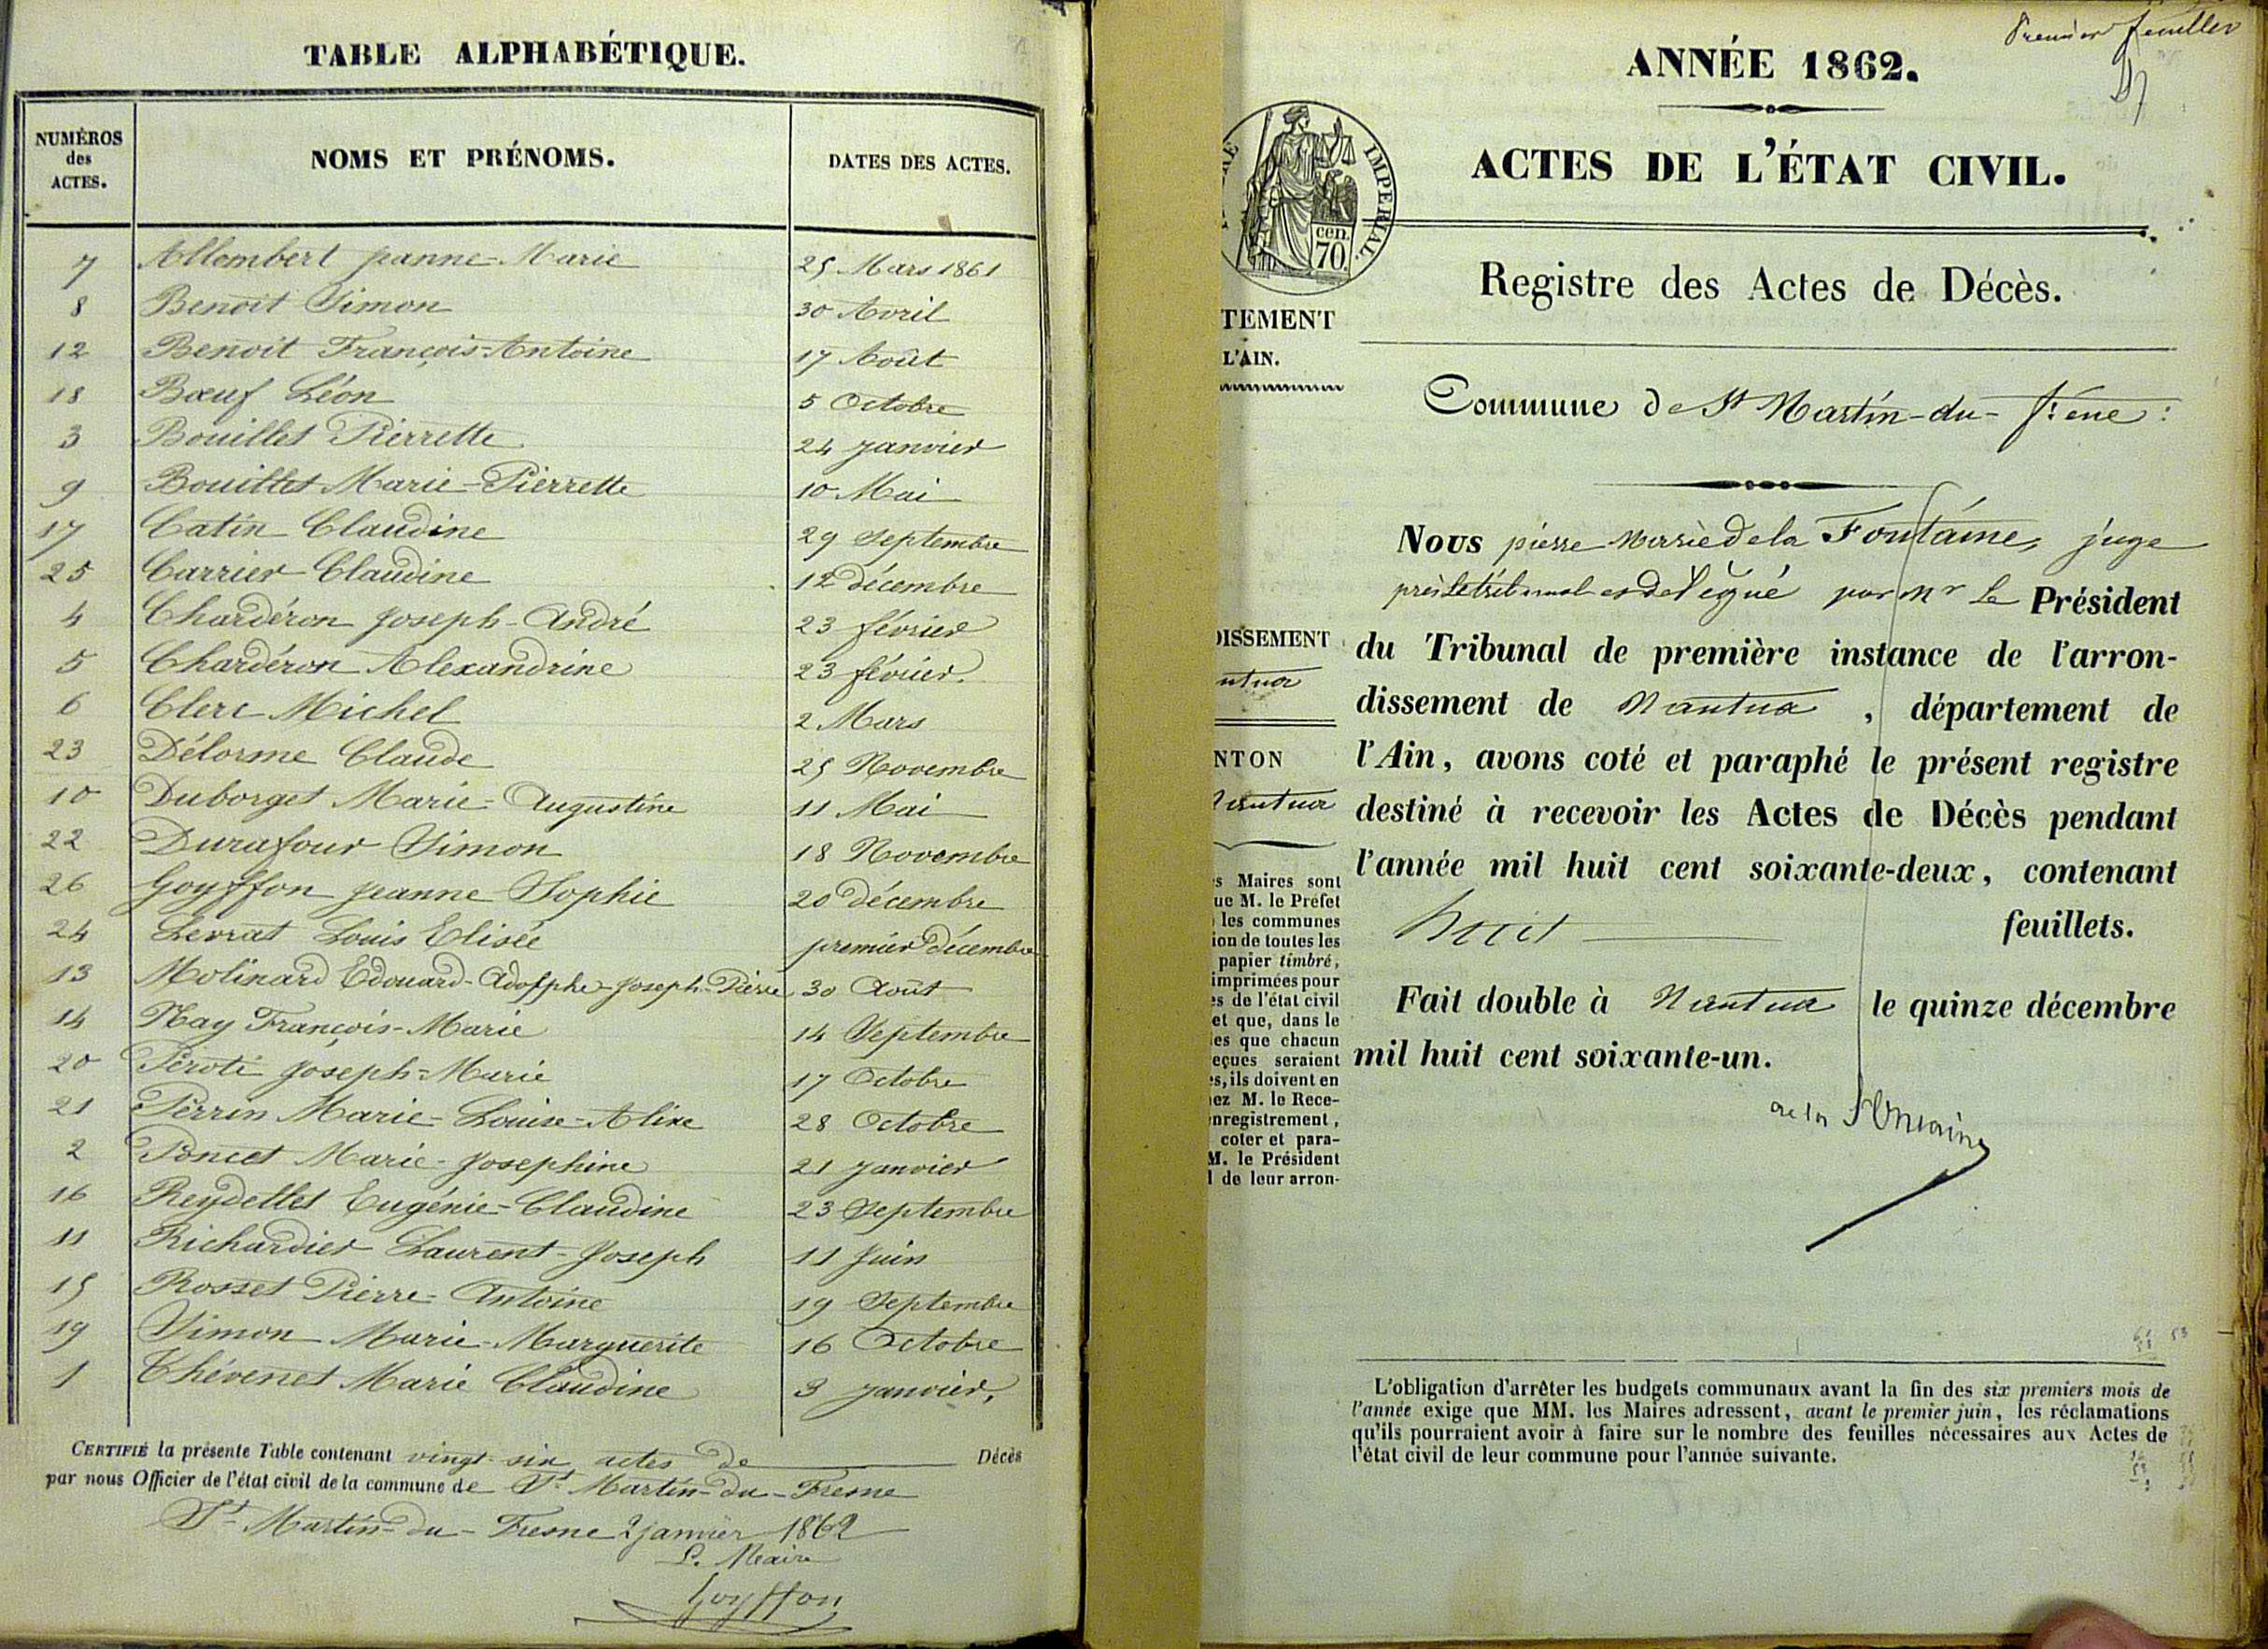 TABLE ALPHABÉTIQUE.
NUMÉROS des ACTES. NOMS ET PRÉNOMS. DATES DES ACTES.
7 Allombert Jeanne-Marie 25 Mars 1861
8 Benoit Simon 30 Avril
12 Benoit François-Antoine 17 Août
18 Bœuf Léon 5 Octobre
3 Bouillet Pierrette 24 Janvier
9 Bouillet Marie-Pierrette 10 Mai
17 Catin Claudine 29 Septembre
25 Carrier Claudine 12 décembre
4 Chardéron Joseph-André 23 février
5 Chardéron Alexandrine 23 février.
6 Clerc Michel 2 Mars
23 Délorme Claude 25 Novembre
10 Duborget Marie-Augustine 11 Mai
22 Durafour Simon 18 Novembre
26 Goyffon Jeanne Sophie 20 décembre
24 Levrat Louis Elisée premier décembre
13 Molinard Edouard-Adolphe-Joseph-Pierre 30 Août
14 Nay François-Marie 14 Septembre
20 Péroti Joseph-Marie 17 Octobre
21 Perrin Marie-Louise-Alixe 28 Octobre
2 Poncet Marie-Josephine 21 Janvier
16 Reydellet Eugénie-Claudine 23 Septembre
11 Richardier Laurent-Joseph 11 Juin
15 Rosset Pierre-Antoine 19 Septembre
19 Simon Marie-Marguerite 16 Octobre
1 Thévenet Marie Claudine 3 Janvier.
CERTIFIÉ la présente Table contenant vingt-six actes de Décès
par nous Officier de l'état civil de la commune de St Martin-du-Fresne
St Martin-du-Fresne 2 janvier 1862
L. Maire
Goyffon
Premier feuillet
ANNÉE 1862.
ACTES DE L'ÉTAT CIVIL.
IMPÉRIAL.
cen.
70.
Registre des Actes de Décès.
TEMENT
L'AIN.
Commune de St Martin-du-frêne:
Nous pierre Marie de la Fontaine, juge
près le tribunal et délégué par Mr le Président
du Tribunal de première instance de l'arron-
dissement de Nantua, département de
l'Ain, avons coté et paraphé le présent registre
destiné à recevoir les Actes de Décès pendant
l'année mil huit cent soixante-deux, contenant
huit feuillets.
Fait double à Nantua le quinze décembre
mil huit cent soixante-un.
de la Fontaine
DISSEMENT
ntua
NTON
Nantua
s Maires sont
ue M. le Préfet
les communes
ion de toutes les
papier timbré,
imprimées pour
es de l'état civil
et que, dans le
es que chacun
eçues seraient
es, ils doivent en
ez M. le Rece-
nregistrement,
coter et para-
M. le Président
l de leur arron-
L'obligation d'arrêter les budgets communaux avant la fin des six premiers mois de
l'année exige que MM. les Maires adressent, avant le premier juin, les réclamations
qu'ils pourraient avoir à faire sur le nombre des feuilles nécessaires aux Actes de
l'état civil de leur commune pour l'année suivante.